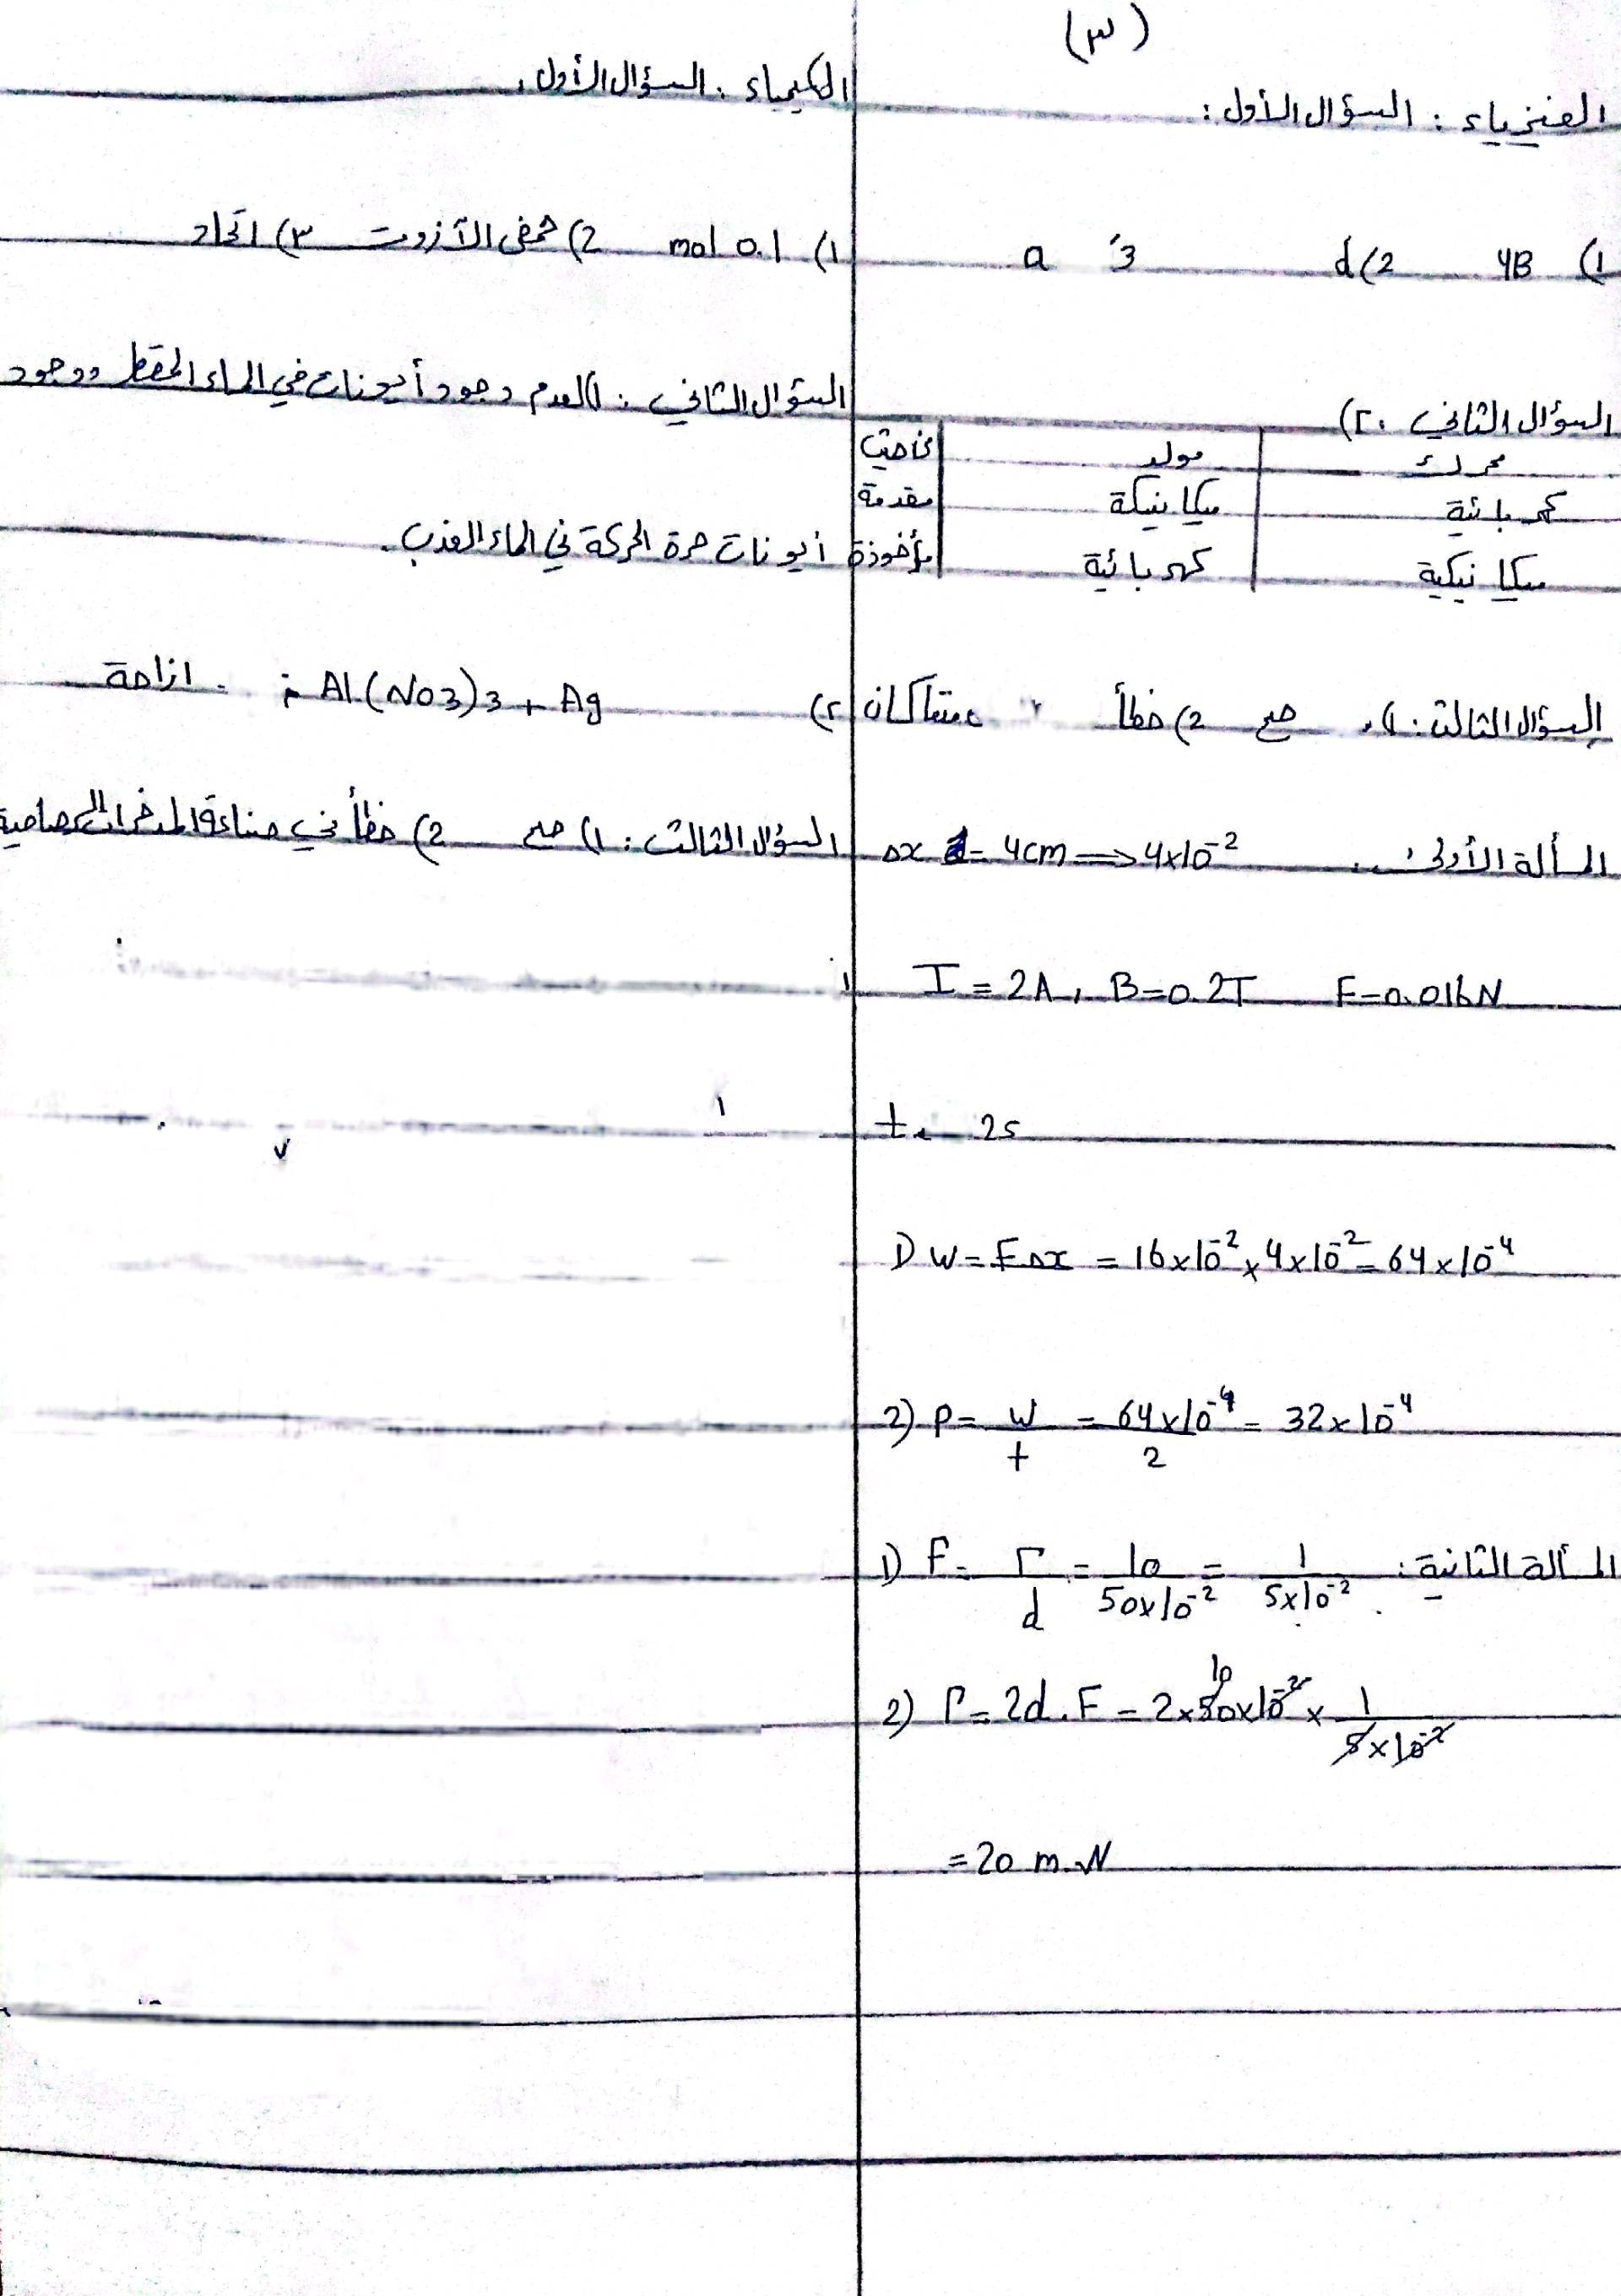 (٣)
الفيزياء : السؤال الأول :
1) 4B 2) d 3 a
السؤال الثاني : ٢)
محرك مولد من حيث
كهربائية ميكانيكة مقدمة
ميكانيكية كهربائية مأخوذة
السؤال الثالث : 1) صح 2) خطأ متعاكسان
المسألة الأولى : Δx = 4cm => 4x10⁻²
I = 2A , B = 0.2T F = 0.016N
t = 2s
1) W = F Δx = 16x10⁻² x 4x10⁻² = 64x10⁻⁴
2) P = W/t = 64x10⁻⁴/2 = 32x10⁻⁴
المسألة الثانية : 1) F = Γ/d = 10/50x10⁻² = 1/5x10⁻²
2) Γ = 2d . F = 2x50x10⁻² x 1/5x10⁻² 10
= 20 m.N
الكيمياء : السؤال الأول :
1) 0.1 mol 2) حمض الآزوت ٣) اتحاد
السؤال الثاني : 1) لعدم وجود أيونات في الماء المقطر ووجود
أيونات حرة الحركة في الماء العذب .
٢) Al(NO3)3 + Ag ازاحة
السؤال الثالث : 1) صح 2) خطأ في صناعة المدخرات الرصاصية